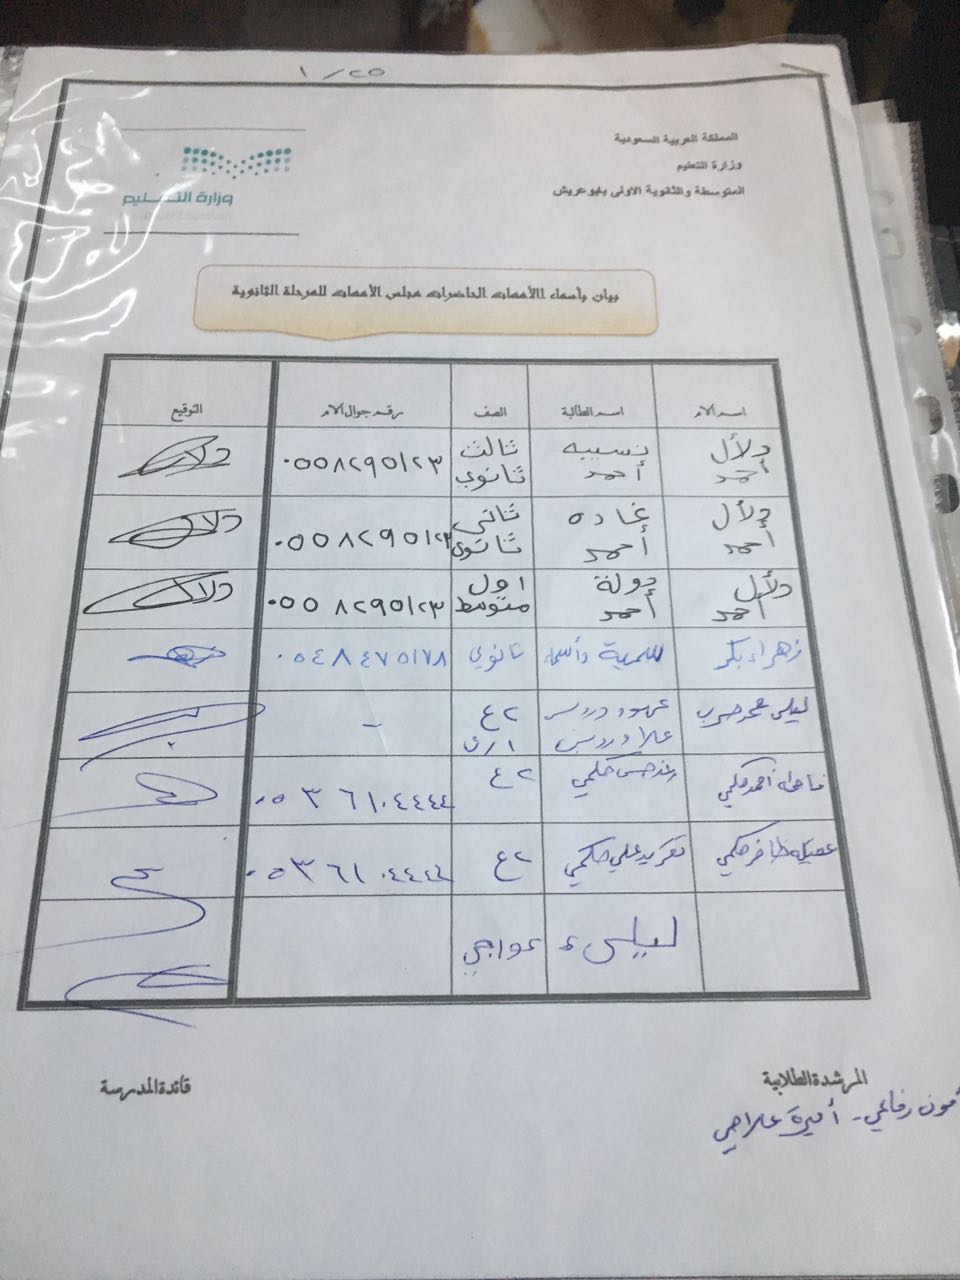 ١ / ٢٥
المملكة العربية السعودية
وزارة التعليم
المتوسطة والثانوية الاولى بابوعريش
وزارة التعليم
بيان بأسماء الأمهات الحاضرات مجلس الأمهات للمرحلة الثانوية
اسم الام اسم الطالبة الصف رقم جوال الام التوقيع
دلال أحمد نسيبه أحمد ثالث ثانوي ٠٥٥٨٢٩٥١٢٣ دلال
دلال أحمد غاده أحمد ثاني ثانوي ٠٥٥٨٢٩٥١٢٣ دلال
دلال أحمد دولة أحمد اول متوسط ٠٥٥٨٢٩٥١٢٣ دلال
زهراء بكر سمية وأسماء ثانوي ٠٥٤٨٤٧٥١٧٨
ليلى محمد عهود علا ٢ع -
فاطمة احمد حكمي رغد حسن حكمي ٢ع ٠٥٣٦١٠٤٤٤٤
ظافر حكمي تغريد علي حكمي ٢ع ٠٥٣٦١٠٤٤٤٤
ليلى ع عواجي
المرشدة الطلابية قائدة المدرسة
رفاعي - أميرة